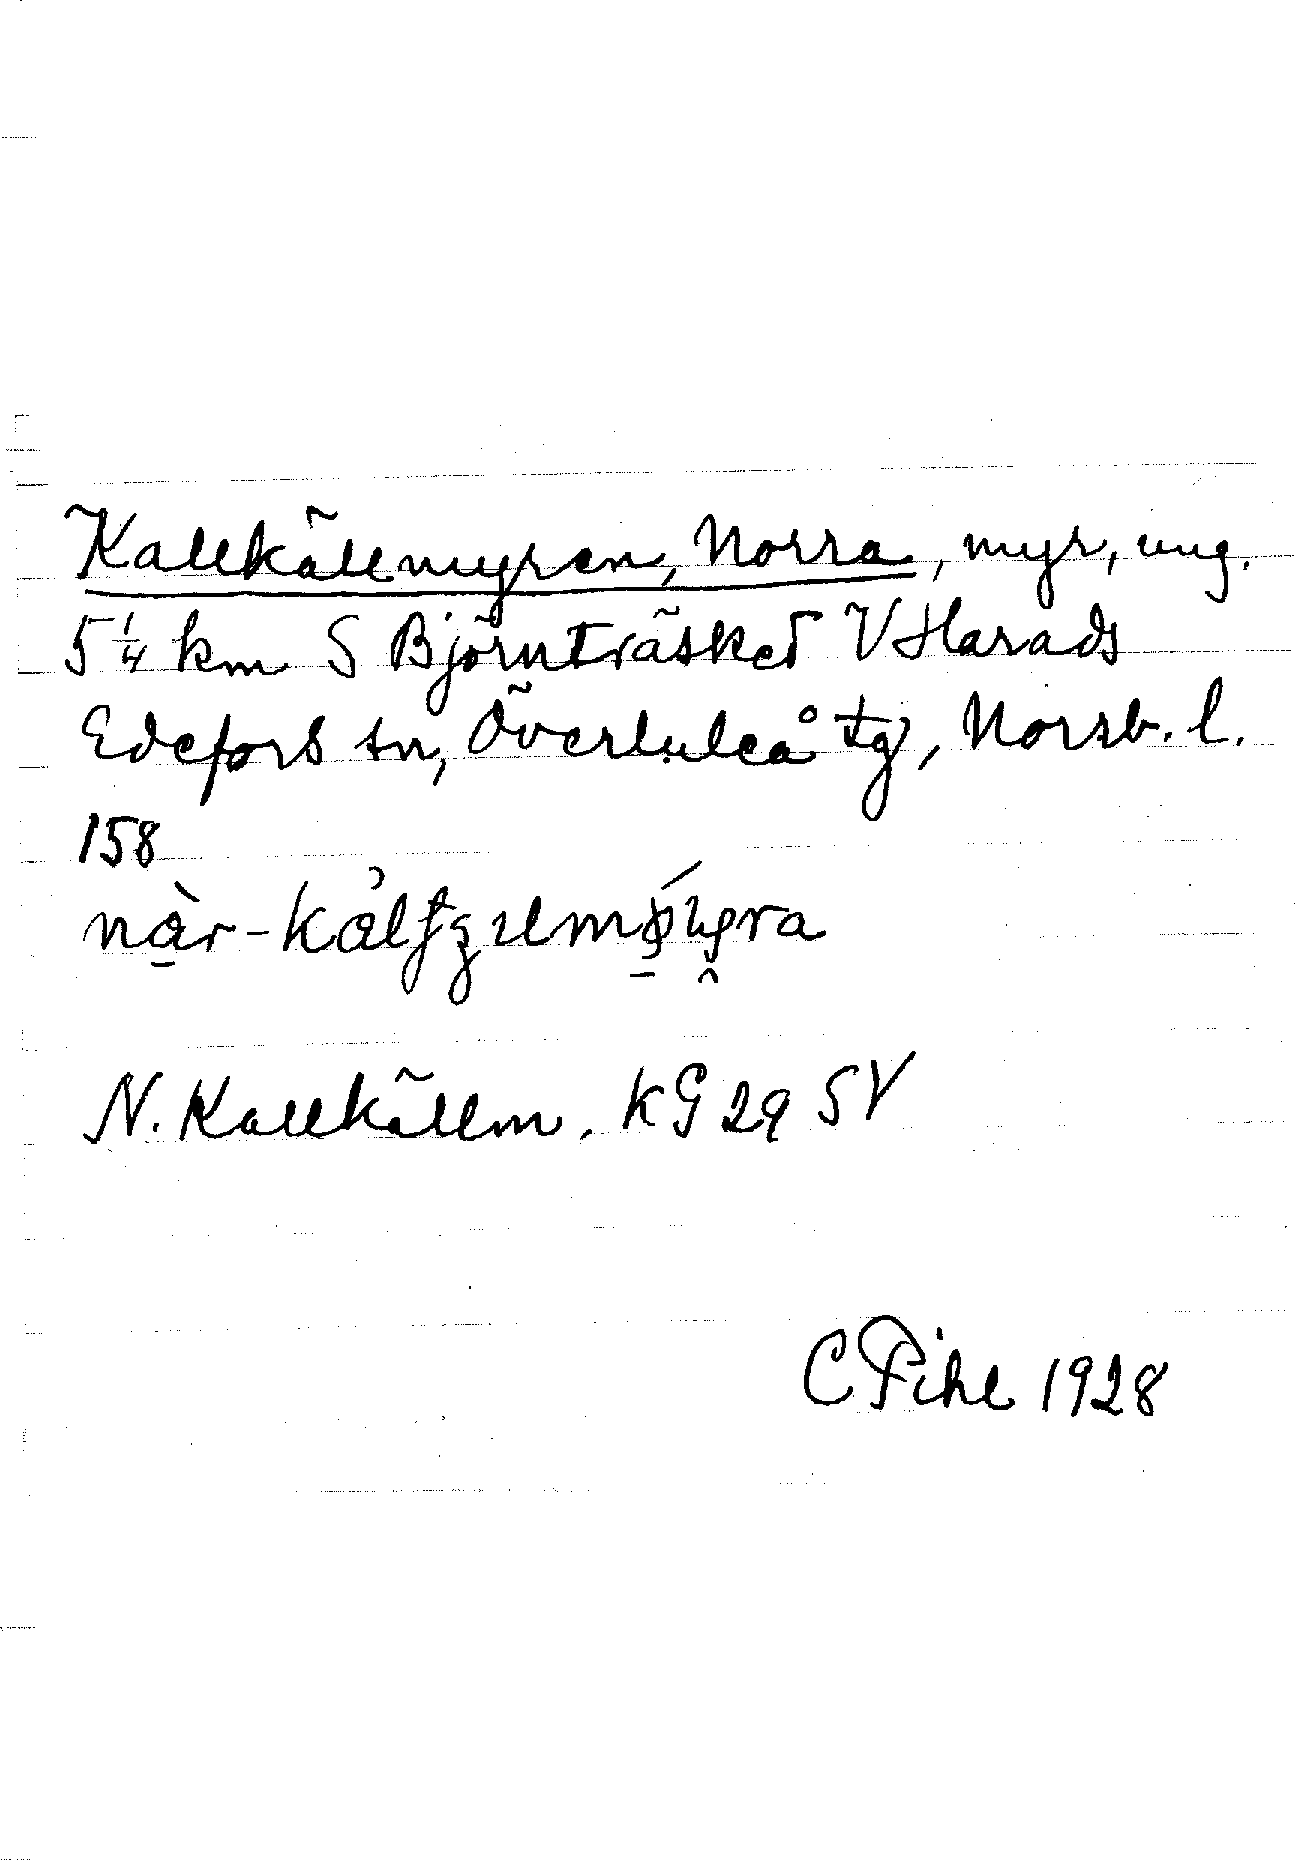 Kallkällmyren, Norra, myr, ung.
5 1/4 km S Björnträsket V Harads
Edefors sn, Överluleå tg, Norrb. l.
158
N. Kallkällm. KG 29 SV
C Pihl 1928